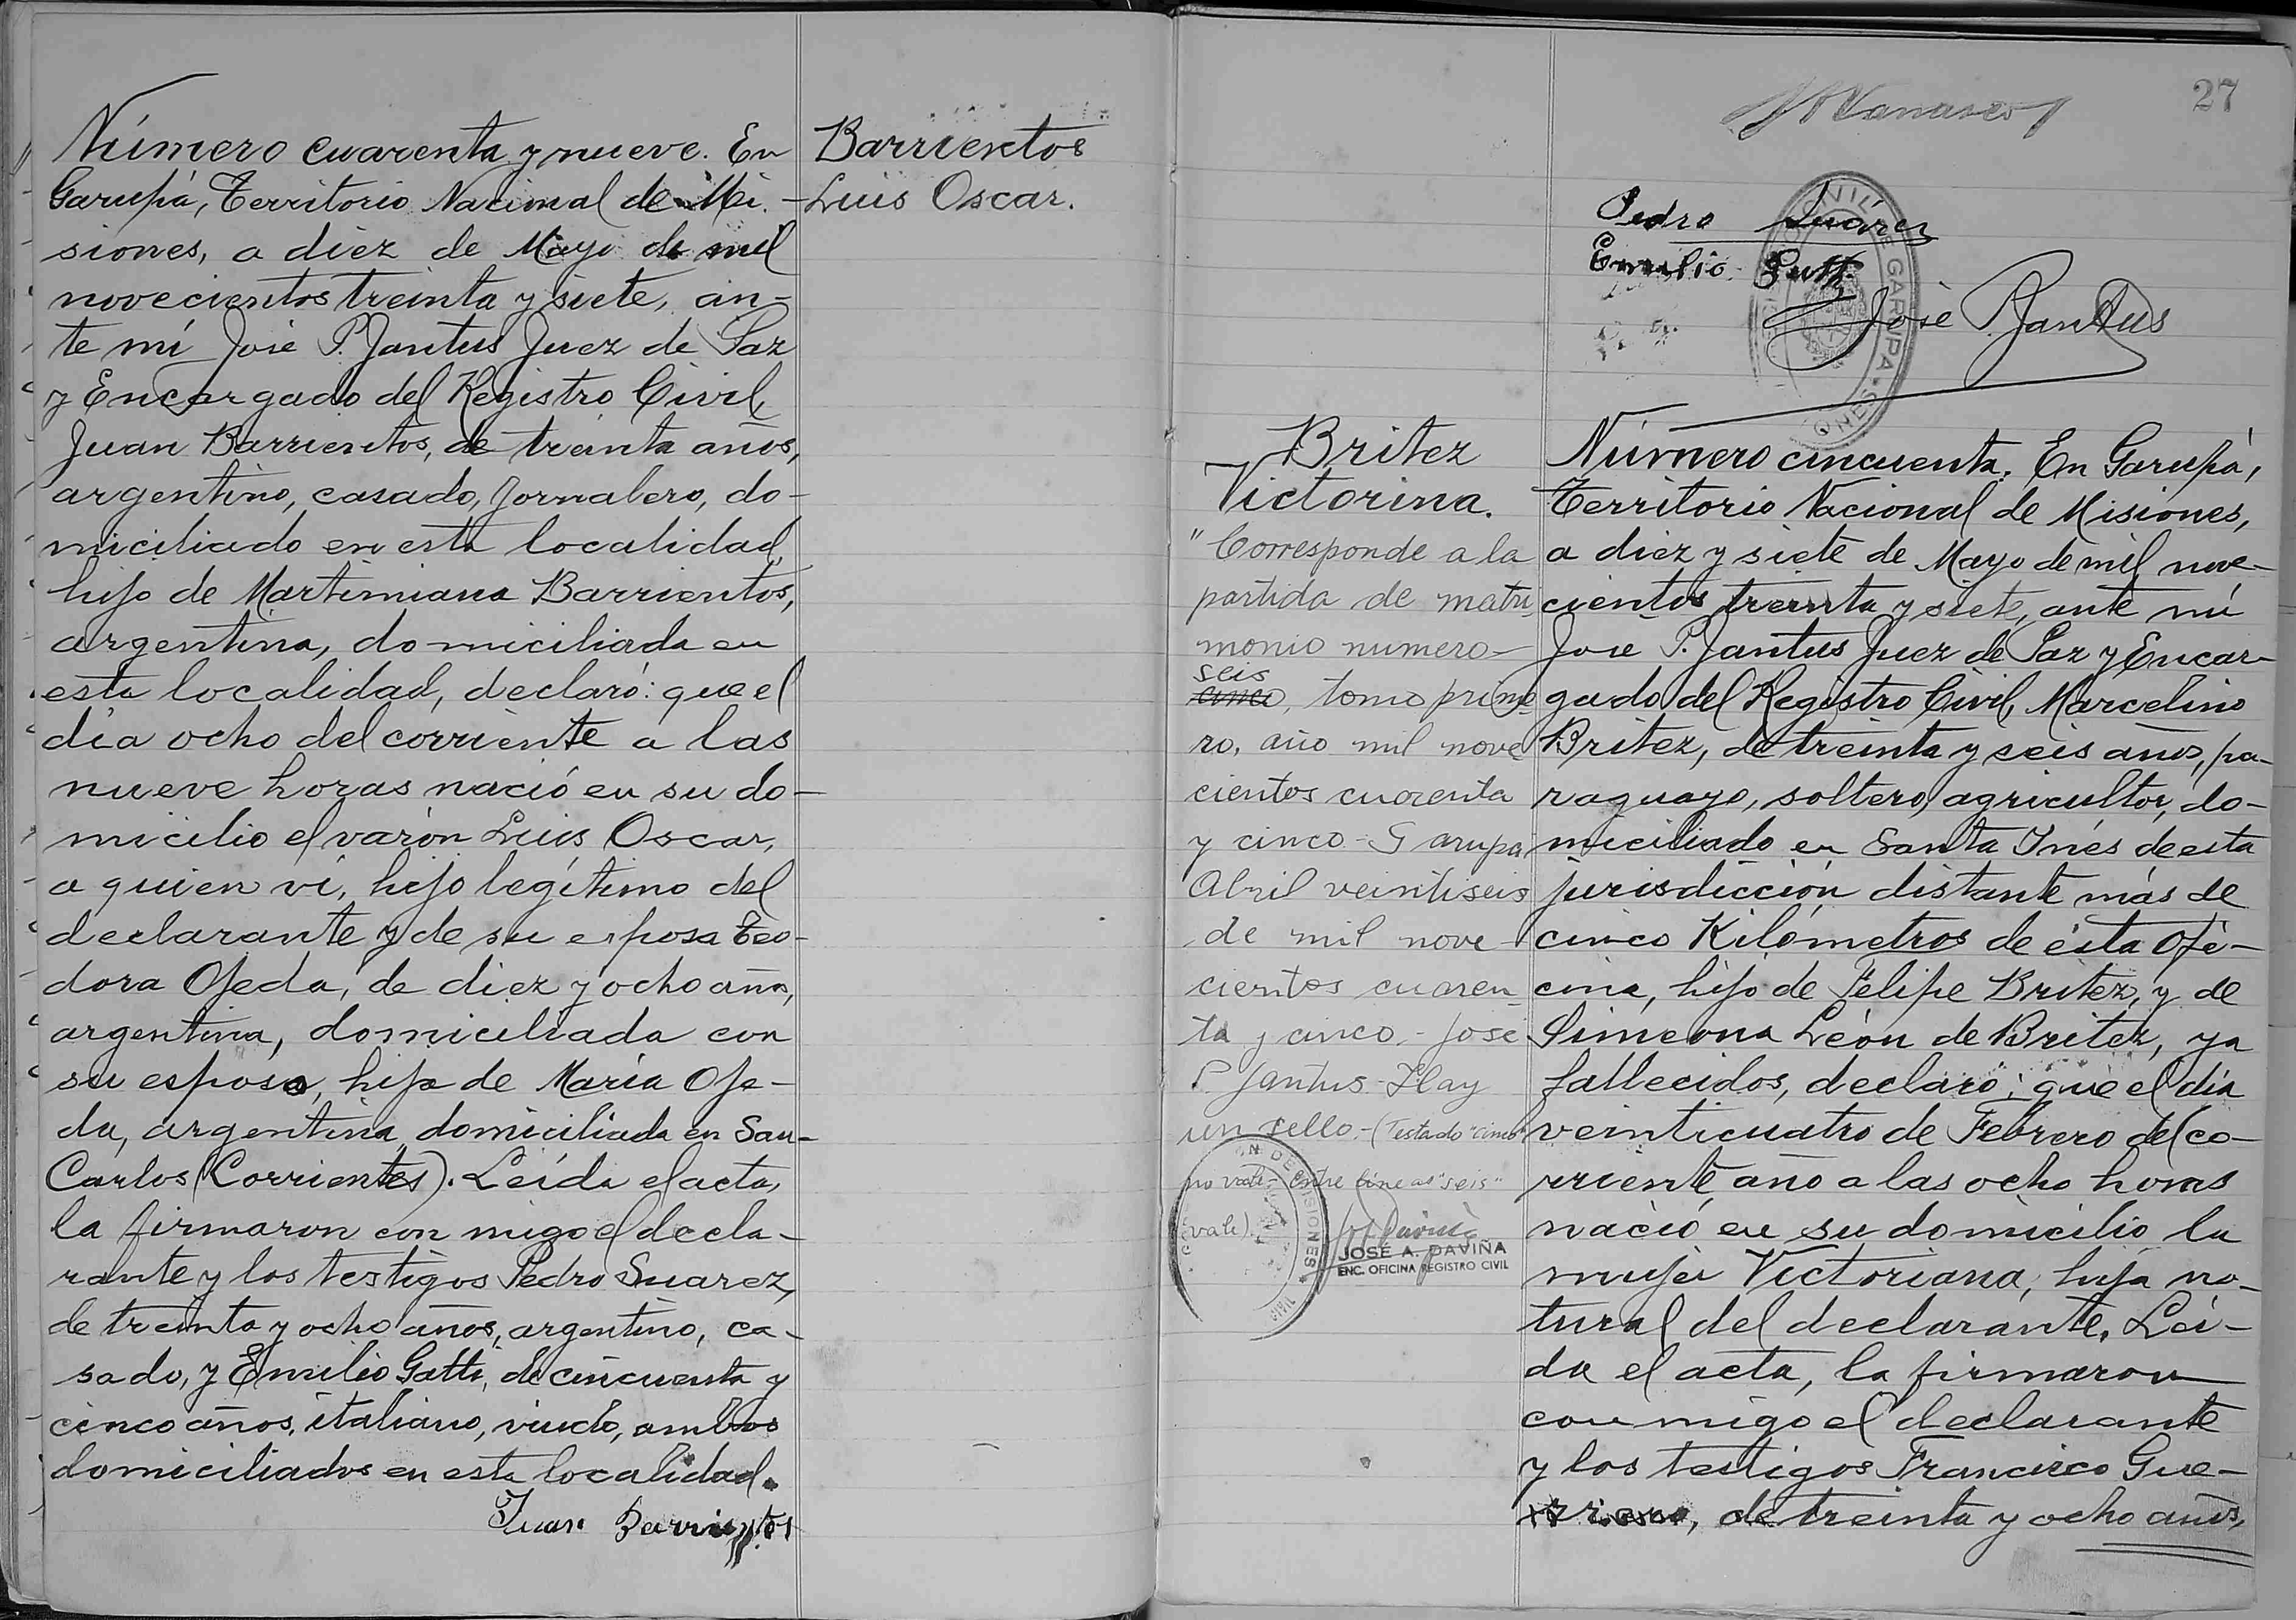 Número cuarenta y nueve. En
Garupá, Territorio Nacional de Mi-
siones, a diez de Mayo de mil
novecientos treinta y siete, an-
te mí José P. Jantus Juez de Paz
y Encargado del Registro Civil,
Juan Barrientos, de treinta años,
argentino, casado, jornalero, do-
miciliado en esta localidad,
hijo de Martimiana Barrientos,
argentina, domiciliada en
esta localidad, declaró: que el
día ocho del corriente a las
nueve horas nació en su do-
micilio el varón Luis Oscar,
a quien ví, hijo legítimo del
declarante y de su esposa Teo-
dora Ojeda, de diez y ocho años,
argentina, domiciliada con
su esposo, hija de María Oje-
da, argentina domiciliada en San
Carlos (Corrientes). Leída el acta,
la firmaron con migo el decla-
rante y los testigos Pedro Suarez,
de treinta y ocho años, argentino, ca-
sado, y Emilio Gatti, de cincuenta y
cinco años, italiano, viudo, ambos
domiciliados en esta localidad.
Juan Barrientos
Barrientos
Luis Oscar.
27
Pedro Suárez
Emilio Gatti
José P. Jantus
GARUPA
Britez
Victorina.
"Corresponde a la
partida de matri
monio numero
seis
cinco, tomo prime
ro, año mil nove
cientos cuarenta
y cinco - Garupa
Abril veintiseis
de mil nove-
cientos cuaren
ta y cinco - José
P. Jantus - Hay
un sello. - (Testado "cinco"
no vale - entre lineas "seis"
vale).
MISIONES
JOSÉ A. DAVIÑA
ENC. OFICINA REGISTRO CIVIL
Número cincuenta. En Garupá,
Territorio Nacional de Misiones,
a diez y siete de Mayo de mil nove-
cientos treinta y siete, ante mí
José P. Jantus Juez de Paz y Encar-
gado del Registro Civil, Marcelino
Britez, de treinta y seis años, pa-
raguayo, soltero, agricultor, do-
miciliado en Santa Inés de esta
jurisdicción distante más de
cinco Kilómetros de ésta Ofi-
cina, hijo de Felipe Britez, y de
Simeona León de Britez, ya
fallecidos, declaró: que el día
veinticuatro de Febrero del co-
rriente año a las ocho horas
nació en su domicilio la
mujer Victoriana, hija na-
tural del declarante. Leí-
da el acta, la firmaron
con migo el declarante
y los testigos Francisco Gue-
de treinta y ocho años,